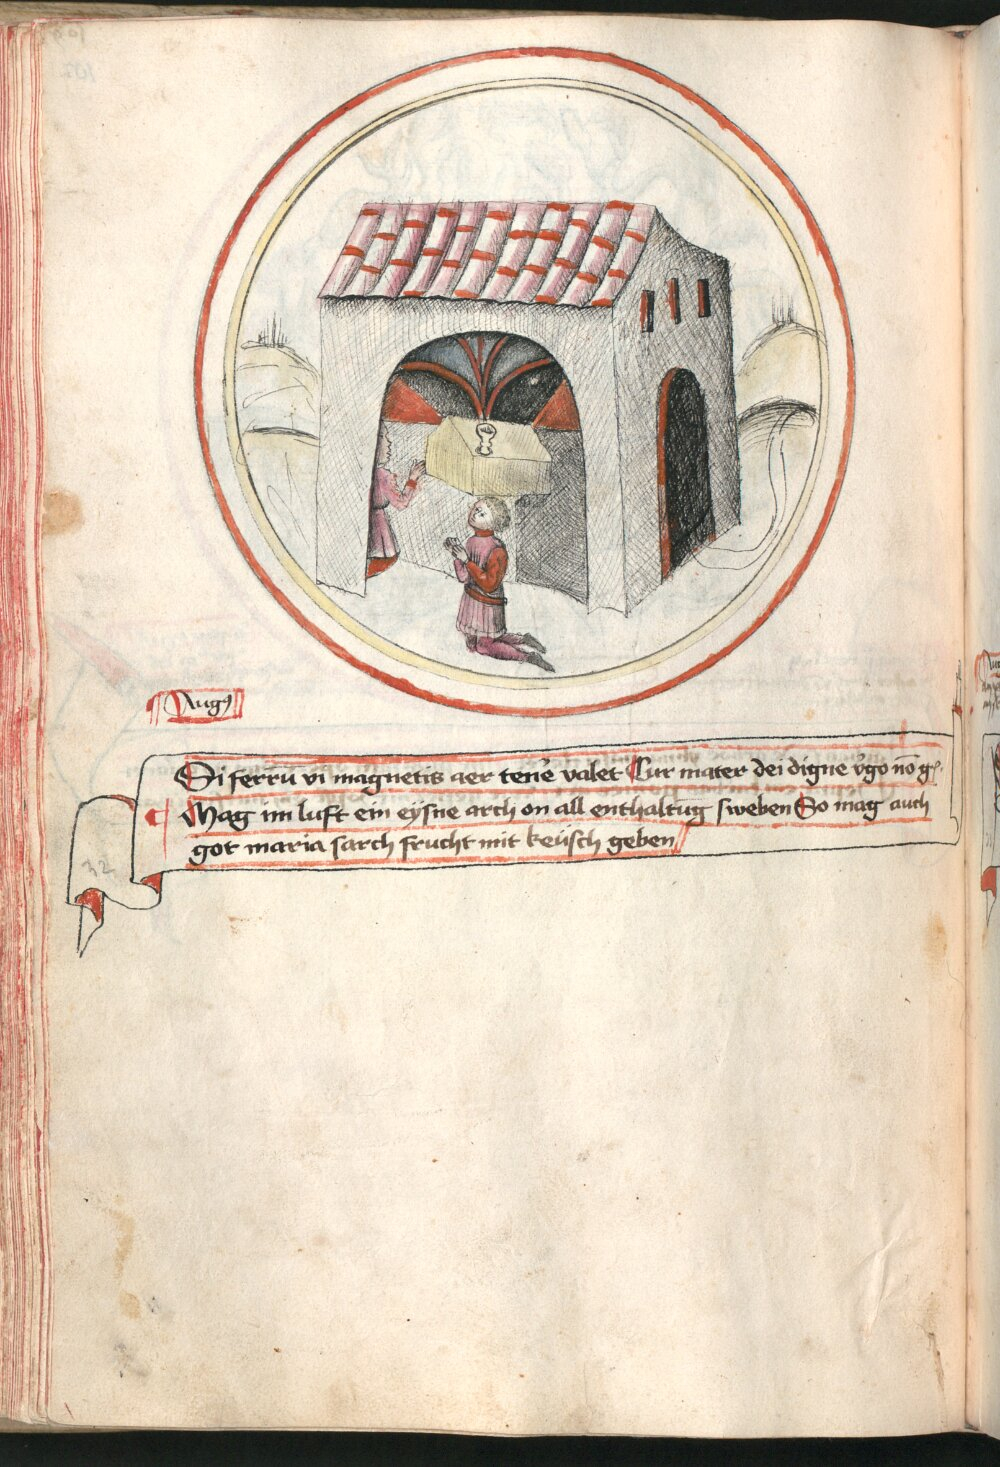 Augꝰ
Si ferrū vi magnetis aer tenēe valet Cur mater dei digne v̊go nō gͣ.
Mag im luft ein eysne arch on all enthaltūg sweben So mag auch
got maria sarch frucht mit keüsch geben
32